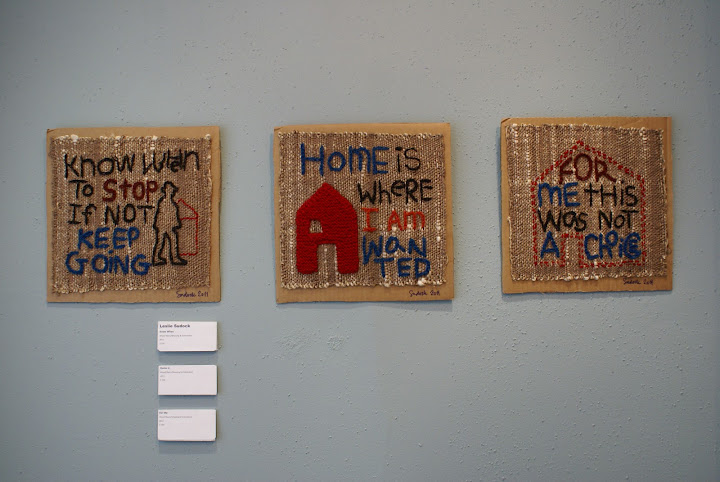 KNOW WHEN
TO STOP
IF NOT
KEEP
GOING
Sudock 2011
HOME is
WHERE
I AM
WAN
TED
Sudock 2011
FOR
ME THIS
WAS NOT
A CHOICE
Sudock 2011
Leslie Sudock